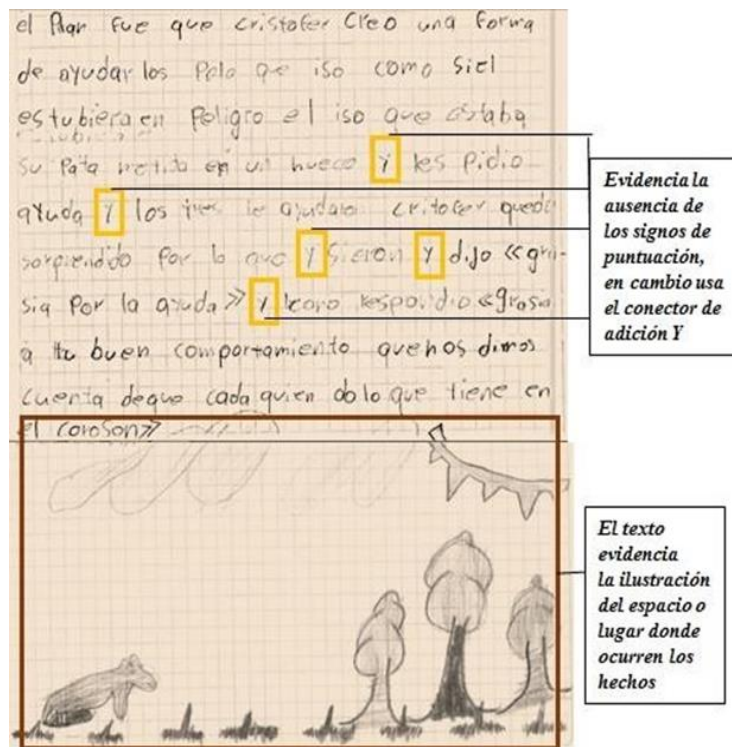 el Plan fue que cristofer Creo una forma
de ayudarlos Pelo que iso como siel
estubiera en Peligro el iso que estaba
su Pata metida en un hueco Y les Pidio
ayuda Y los tres le ayudaron critofer quedo
sorprendido Por lo que Y Sieron Y dijo «gra-
sia Por la ayuda» Y Icaro respondio «grasia
a tu buen comportamiento quenos dimos
cuenta deque cada quien dolo que tiene en
el coroson»
Evidencia la
ausencia de
los signos de
puntuación,
en cambio usa
el conector de
adición Y
El texto
evidencia
la ilustración
del espacio o
lugar donde
ocurren los
hechos